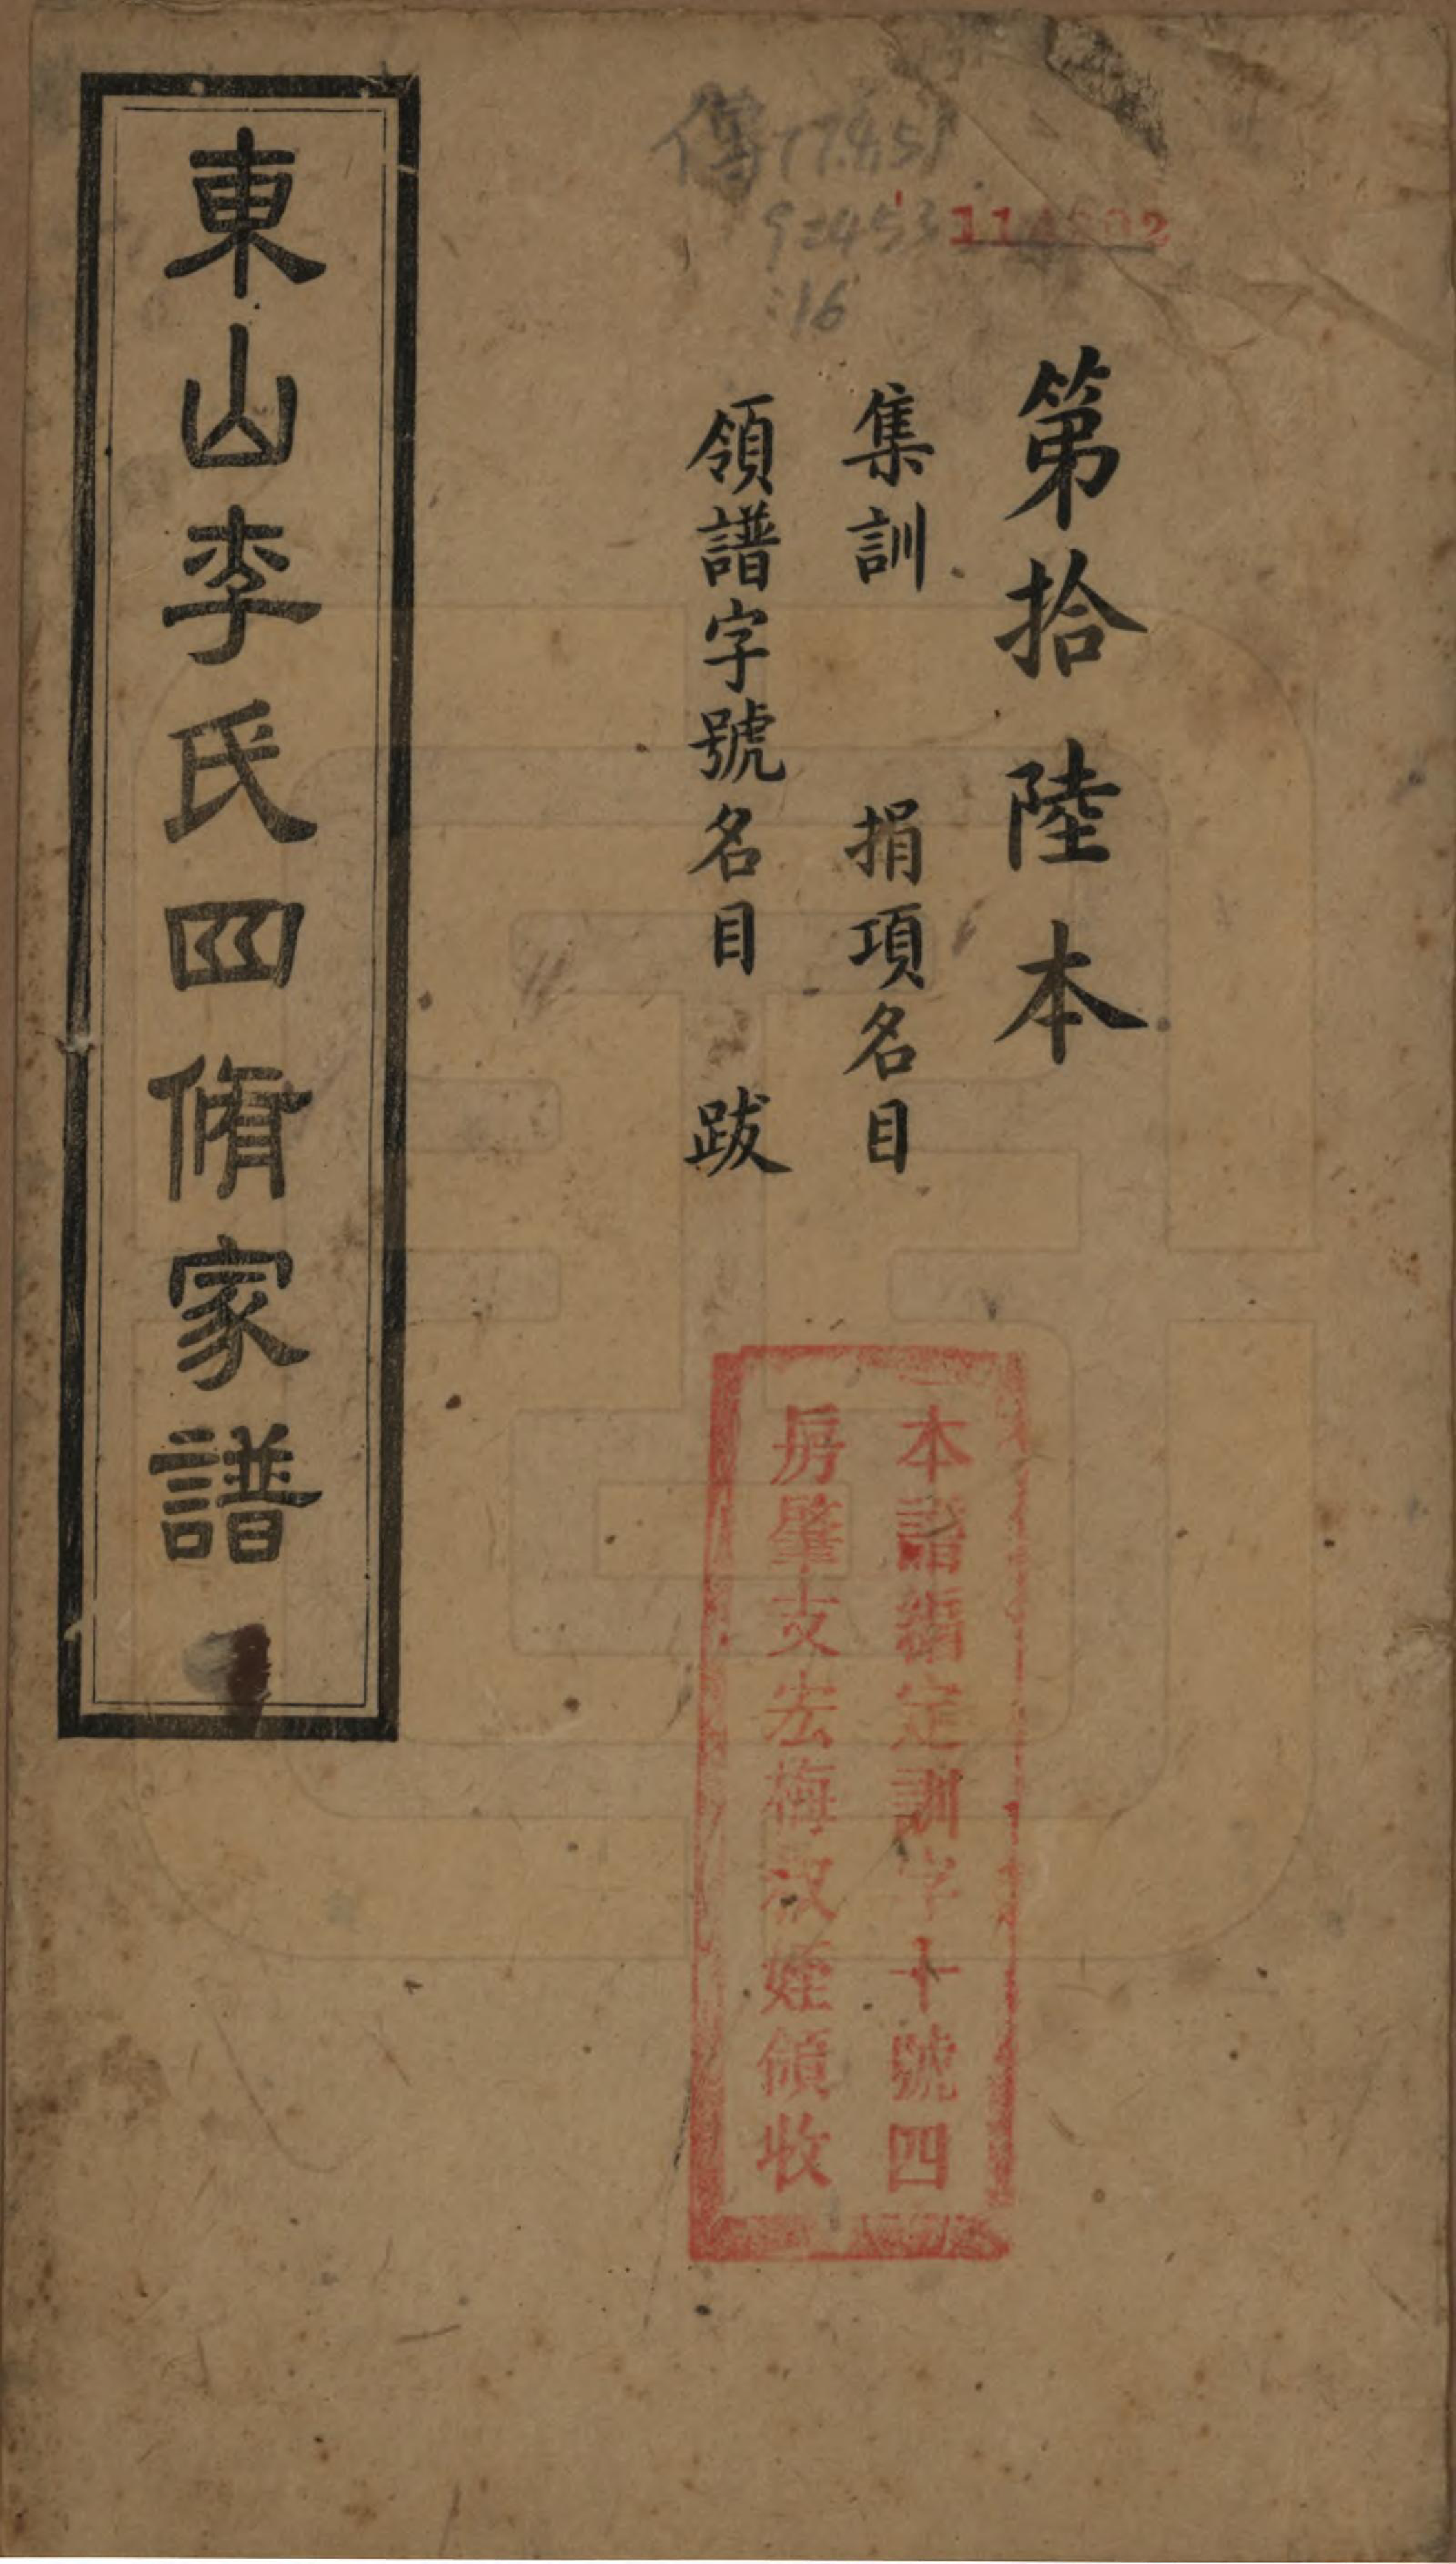 第拾陸本
集訓 捐項名目
領譜字號名目 跋
東山李氏四脩家譜
本譜編定訓字十號四
房肇支宏梅淑姪領收
傳
16